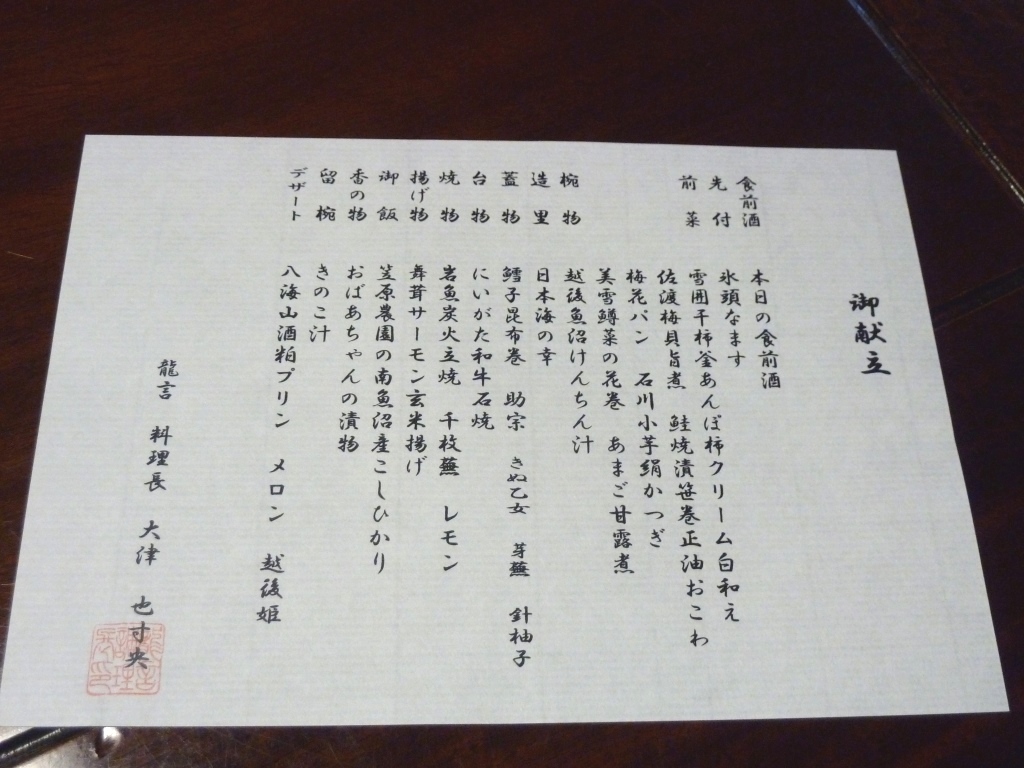 御献立
食前酒 本日の食前酒
先付 氷頭なます
前菜 雪囲干柿釜あんぽ柿クリーム白和え
佐渡梅貝旨煮 鮭焼漬笹巻正油おこわ
梅花パン 石川小芋絹かつぎ
美雪鱒菜の花巻 あまご甘露煮
椀物 越後魚沼けんちん汁
造里 日本海の幸
蓋物 鱈子昆布巻 助宗 きぬ乙女 芽蕪 針柚子
台物 にいがた和牛石焼
焼物 岩魚炭火立焼 千枚蕪 レモン
揚げ物 舞茸サーモン玄米揚げ
御飯 笠原農園の南魚沼産こしひかり
香の物 おばあちゃんの漬物
留椀 きのこ汁
デザート 八海山酒粕プリン メロン 越後姫
龍言 料理長 大津 也寸央